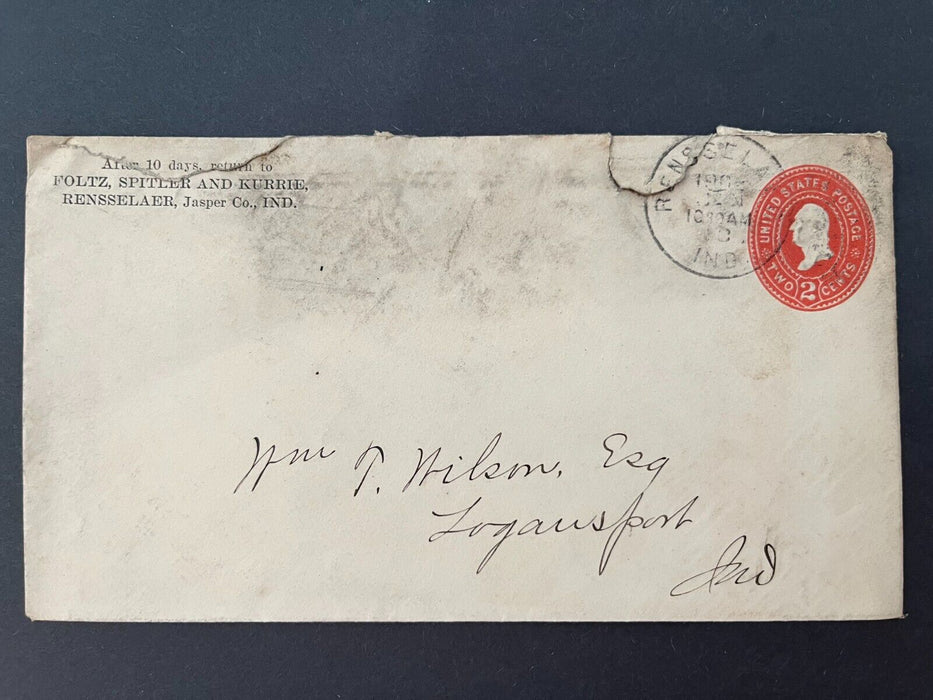 After 10 days, return to
FOLTZ, SPITLER AND KURRIE,
RENSSELAER, Jasper Co., IND.
RENSSELA
AM
IND
UNITED STATES POSTAGE
TWO 2 CENTS
Wm T. Wilson, Esq
Logansport
Ind